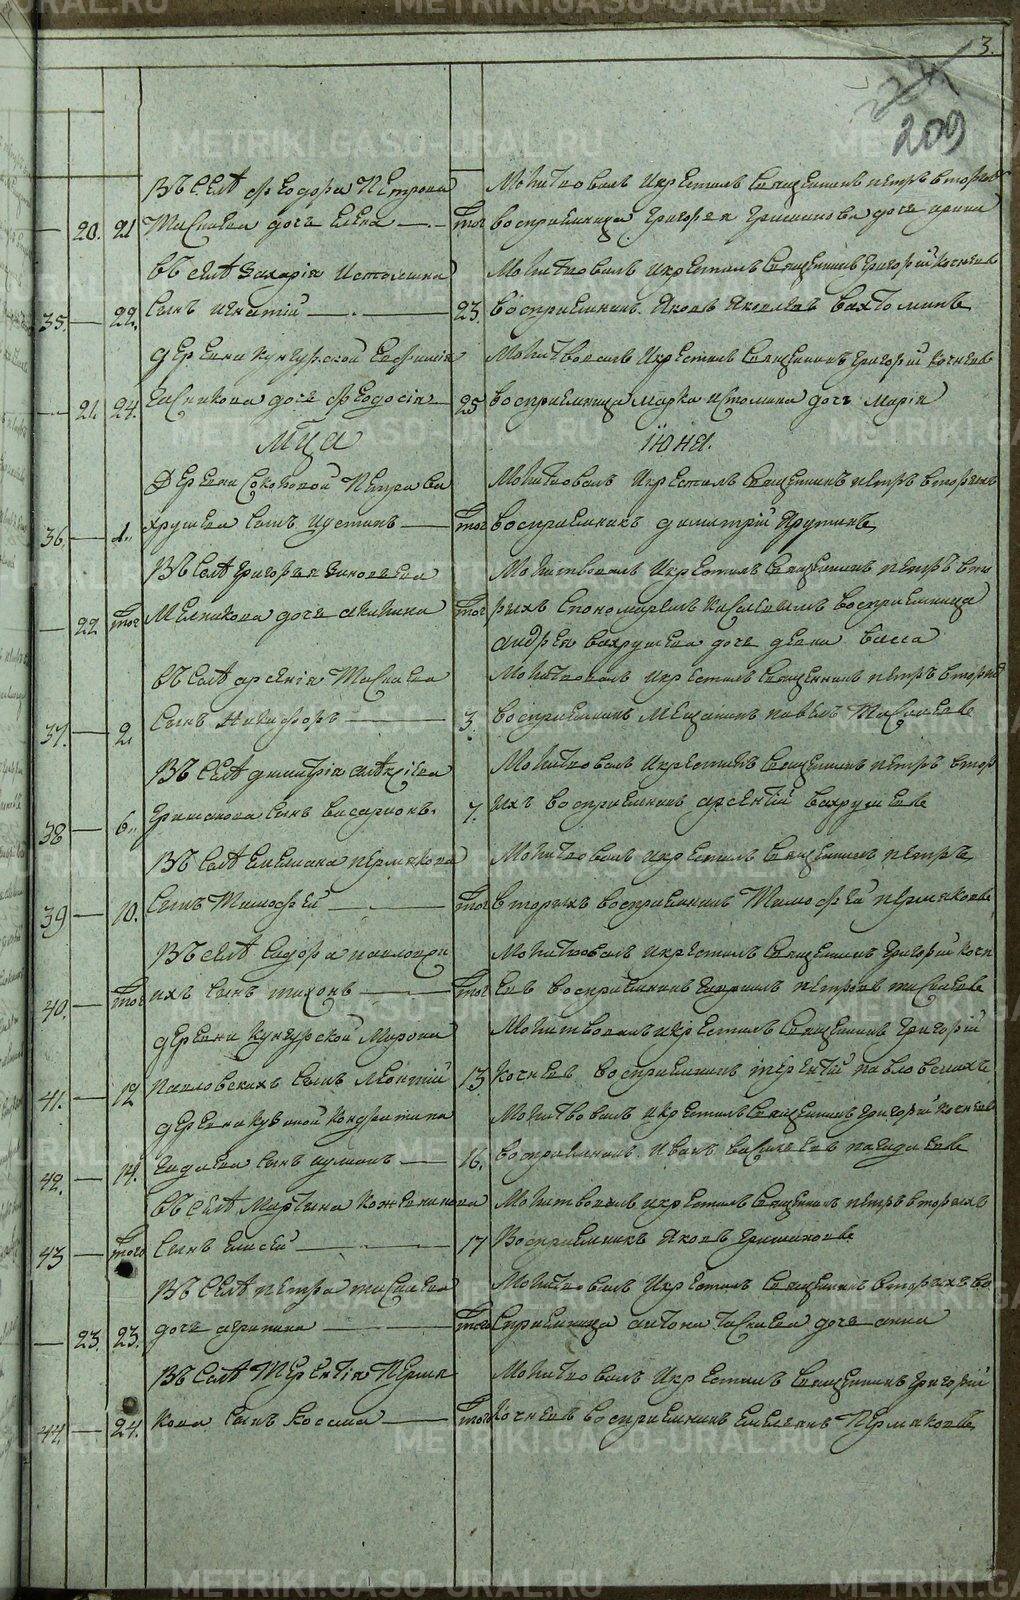 3.
209
Въ селѣ Феодора Петрова Молитвовалъ и крестилъ священникъ Петръ Вторыхъ
20. 21 дочь Елена того восприемница Григорья Гришанова дочь Ирина
Въ селѣ Захарія Истомина Молитвовалъ и крестилъ священникъ Григорій Кочневъ
35. 22. сынъ Игнатій 23. восприемникъ Яковъ Яковлевъ
Деревни Кунгурской Молитвовалъ и крестилъ священникъ Григорій Кочневъ
21. 24. дочь Феодосія 25 восприемница Марка Истомина дочь Марія
Мца Июня.
Деревни Соколовой Петра Ва Молитвовалъ и крестилъ священникъ Петръ Вторыхъ
36. 1. хрушева сынъ Иустинъ того восприемникъ Димитрій
Въ селѣ Григорья Зиновьева Молитвовалъ и крестилъ священникъ Петръ Вто
22 того Мельникова дочь Акилина того рыхъ с пономаремъ восприемница
Андрея Вахрушева дочь девка Васса
Въ селѣ Арсенія Молитвовалъ и крестилъ священникъ Петръ Вторыхъ
37. 2. сынъ Никифоръ 3. восприемникъ мещанинъ Павелъ
Въ селѣ Димитрія Молитвовалъ и крестилъ священникъ Петръ Втор
38 6. Гришанова сынъ Висаріонъ. 7. ыхъ восприемникъ Арсентій Вахрушевъ
Въ селѣ Емельяна Пермякова Молитвовалъ и крестилъ священникъ Петръ
39 10. сынъ Тимофей того Вторыхъ восприемникъ Тимофей Пермяковъ
Въ селѣ Сидора Молитвовалъ и крестилъ священникъ Григорій Кочн
40. того ихъ сынъ Тихонъ того евъ восприемникъ Гавріилъ Петровъ
Деревни Кунгурской Мирона Молитвовалъ и крестилъ священникъ Григорій
41. 12 Павловскихъ сынъ Леонтій 13 Кочневъ восприемникъ Терентій Павловскихъ
Деревни Кондратина Молитвовалъ и крестилъ священникъ Григорій Кочневъ
42. 14. сынъ 16. восприемникъ Иванъ Васильевъ
Въ селѣ Мартина Кожевникова Молитвовалъ и крестилъ священникъ Петръ Вторыхъ
43 того сынъ Елисей 17 Восприемникъ Яковъ Гришановъ
Въ селѣ Петра Молитвовалъ и крестилъ священникъ Вторыхъ во
23. 23. дочь Агрипина того сприемница Антона дочь Анна
Въ селѣ Терентія Пермя Молитвовалъ и крестилъ священникъ Григорій
44. 24. кова сынъ Косма того Кочневъ восприемникъ Емельянъ Пермяковъ
METRIKI.GASO-URAL.RU